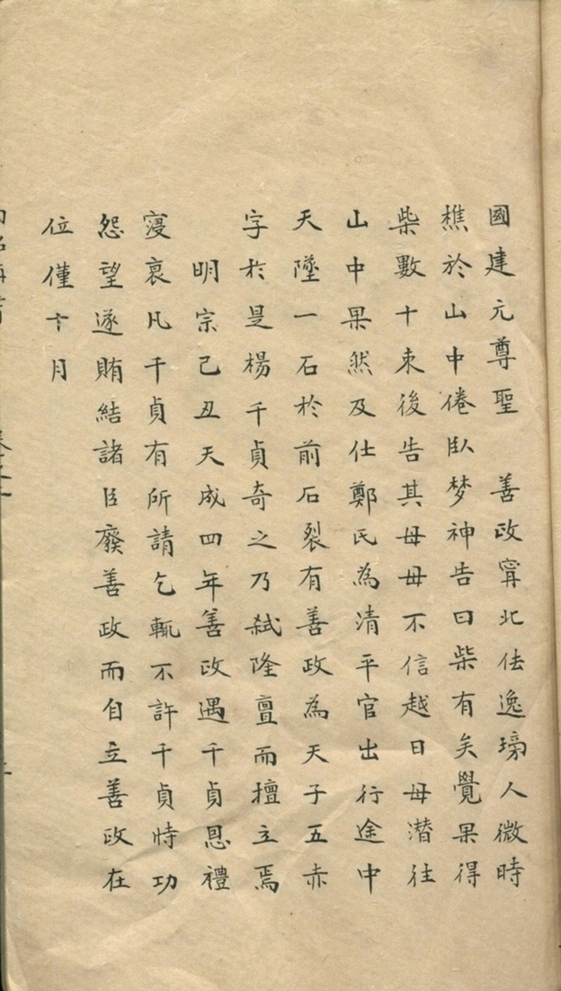 國建元尊聖　善政甯北佉逸瑒人微時
樵於山中倦臥梦神告曰柴有矣覺果得
柴數十束後告其母母不信越日母潛往
山中果然及仕鄭氏為清平官出行途中
天墜一石於前石裂有善政為天子五赤
字於是楊千貞奇之乃弒隆亶而擅立焉
明宗己丑天成四年善政遇千貞恩禮
寖衰凡千貞有所請乞輒不許千貞恃功
怨望遂賄結諸臣廢善政而自立善政在
位僅十月